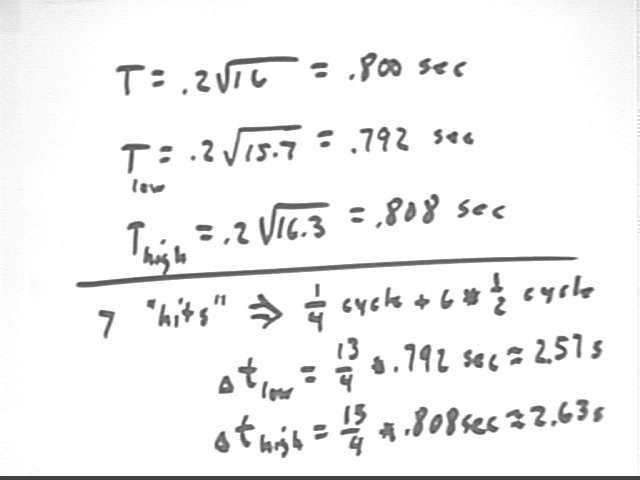 T = .2√16 = .800 sec
T low = .2√15.7 = .792 sec
T high = .2√16.3 = .808 sec
7 "hits" ⇒ 1/4 cycle + 6 * 1/2 cycle
Δt low = 13/4 * .792 sec ≈ 2.57s
Δt high = 13/4 * .808sec ≈ 2.63s